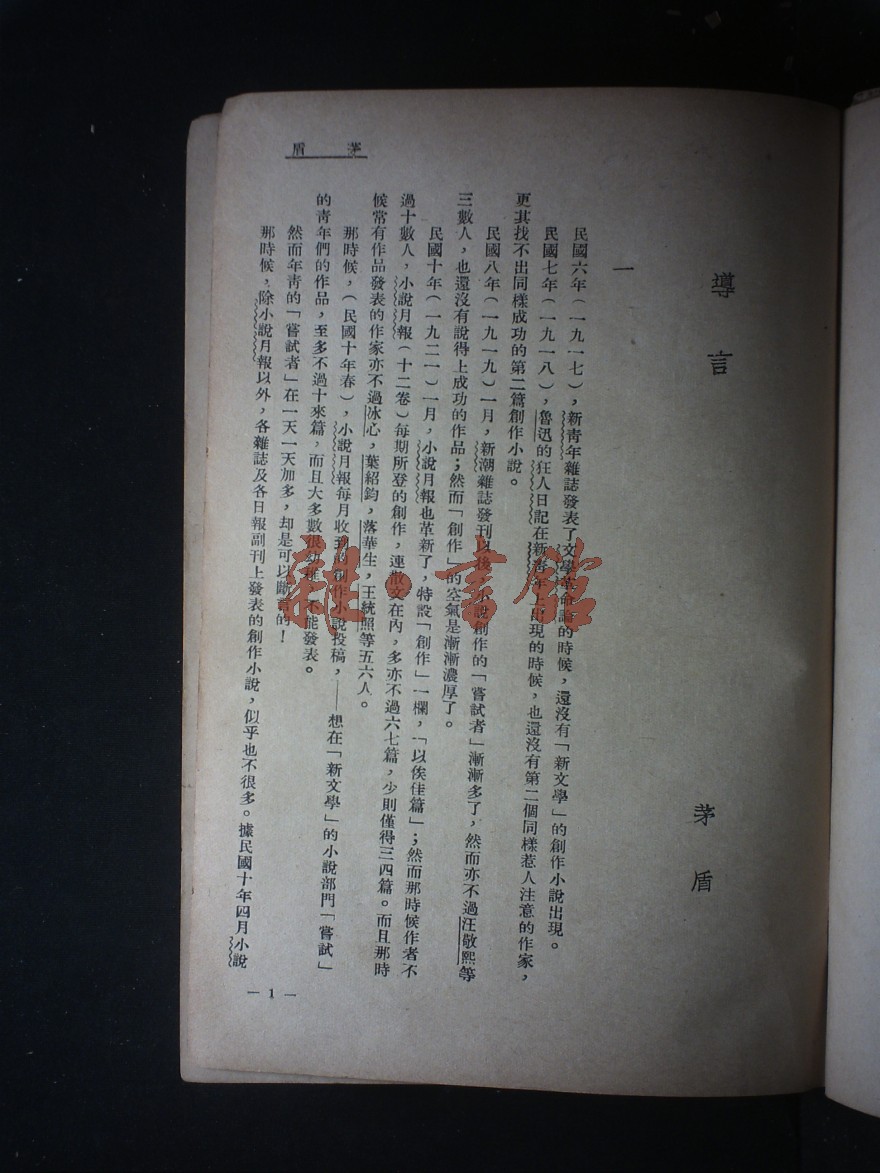 導言
茅盾
一
民國六年（一九一七），新青年雜誌發表了文學革命論的時候，還沒有「新文學」的創作小說出現。
民國七年（一九一八），魯迅的狂人日記在新青年上出現的時候，也還沒有第二個同樣惹人注意的作家，
更其找不出同樣成功的第二篇創作小說。
民國八年（一九一九）一月，新潮雜誌發刊以後，小說創作的「嘗試者」漸漸多了，然而亦不過汪敬熙等
三數人，也還沒有說得上成功的作品；然而「創作」的空氣是漸漸濃厚了。
民國十年（一九二一）一月，小說月報也革新了，特設「創作」一欄，「以俟佳篇」；然而那時候作者不
過十數人，小說月報（十二卷）每期所登的創作，連散文在內，多亦不過六七篇，少則僅得三四篇。而且那時
候常有作品發表的作家亦不過冰心，葉紹鈞，落華生，王統照等五六人。
那時候，（民國十年春），小說月報每月收到的創作小說投稿，——想在「新文學」的小說部門「嘗試」
的青年們的作品，至多不過十來篇，而且大多數很幼稚，不能發表。
然而年青的「嘗試者」在一天一天加多，却是可以斷言的！
那時候，除小說月報以外，各雜誌及各日報副刊上發表的創作小說，似乎也不很多。據民國十年四月小說
茅盾
— 1 —
雜·書館